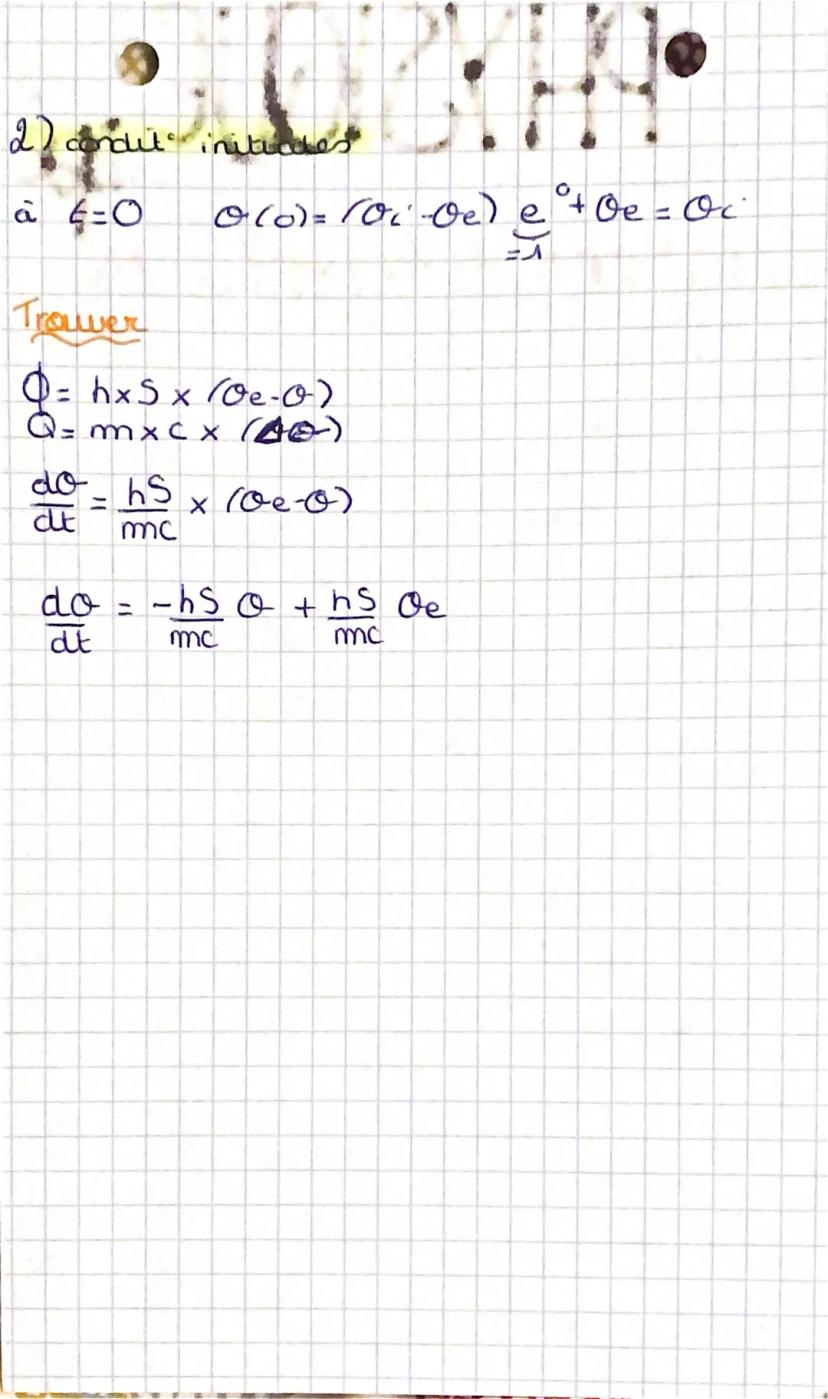 2) condit° initiales
à t=0 θ(0)= (θi-θe) e⁰ + θe = θi
=1
Trouver
Φ = h×S × (θe-θ)
Q = m×c × (Δθ)
dθ/dt = hS/mc × (θe-θ)
dθ/dt = -hS/mc θ + hS/mc θe